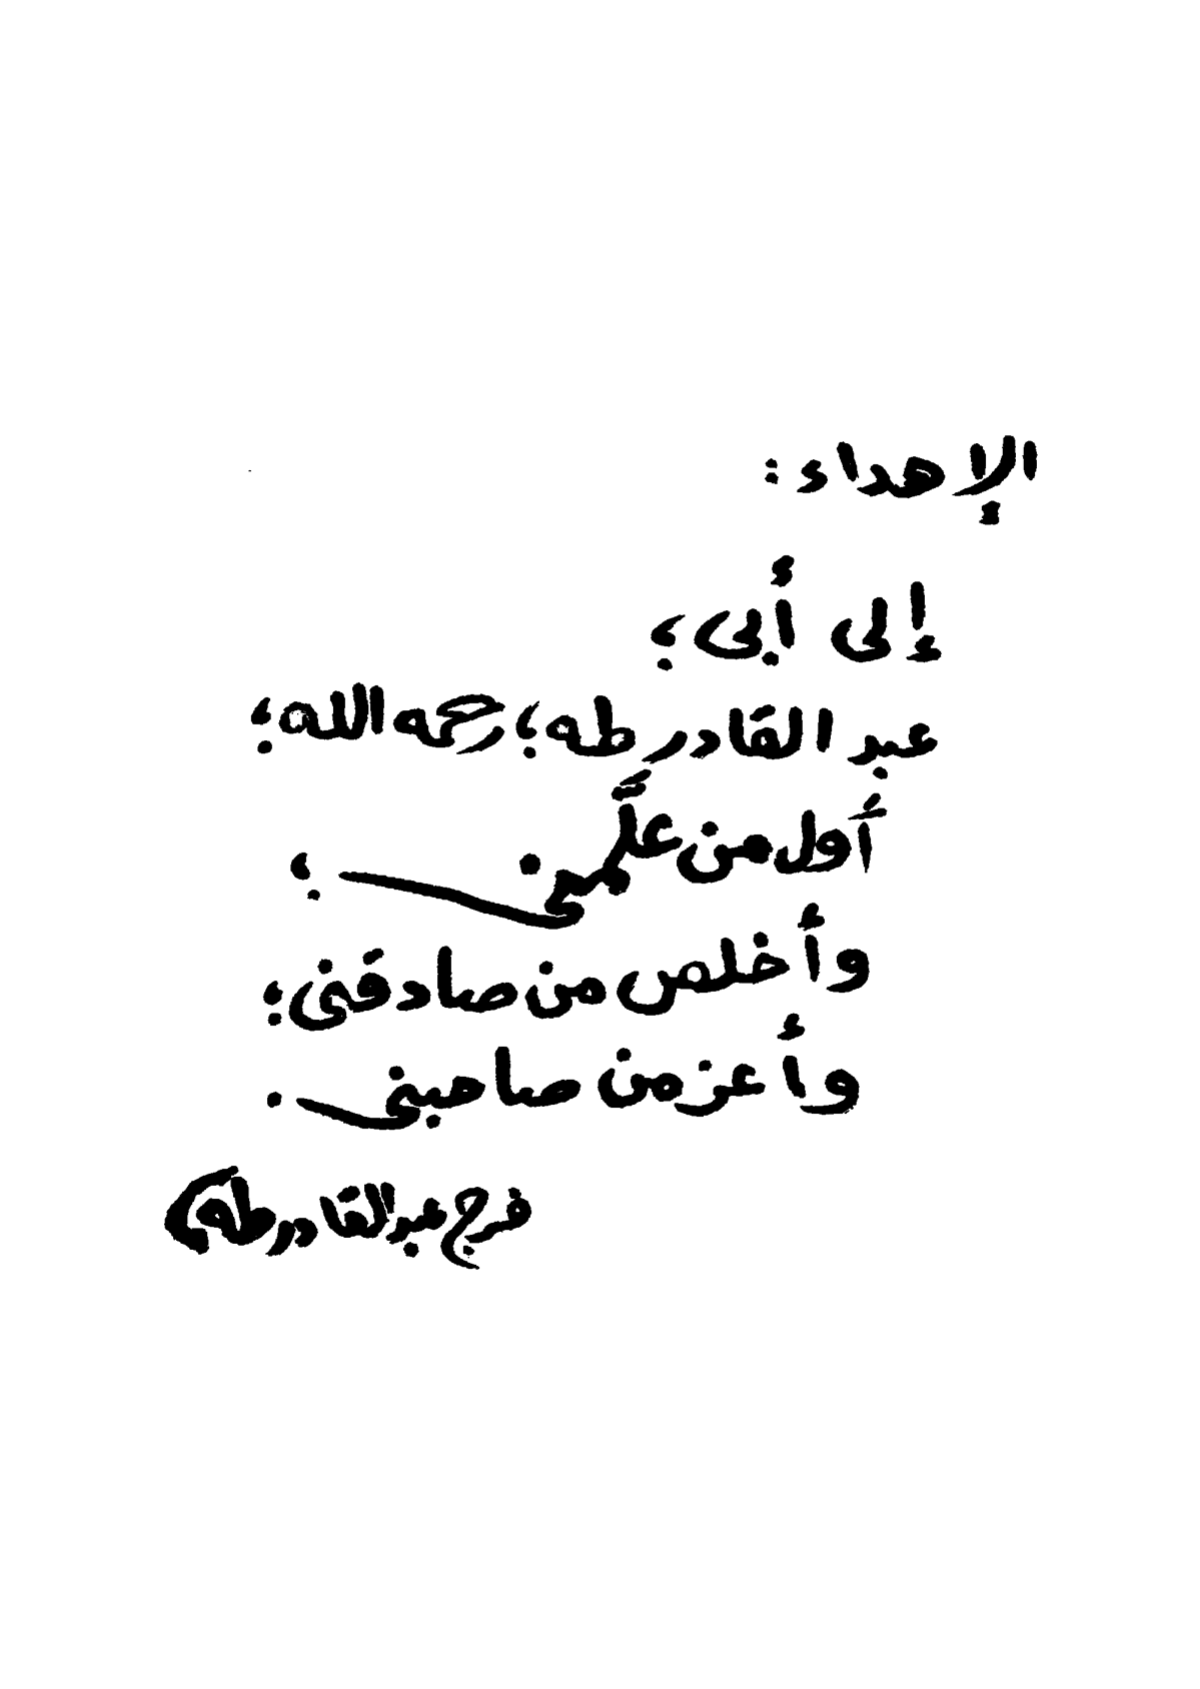 الإهداء :
إلى أبى ؛
عبد القادر طه ؛ رحمه الله ؛
أول من علَّمنى ؛
وأخلص من صادقنى ؛
وأعز من صاحبنى .
فرج عبد القادر طه